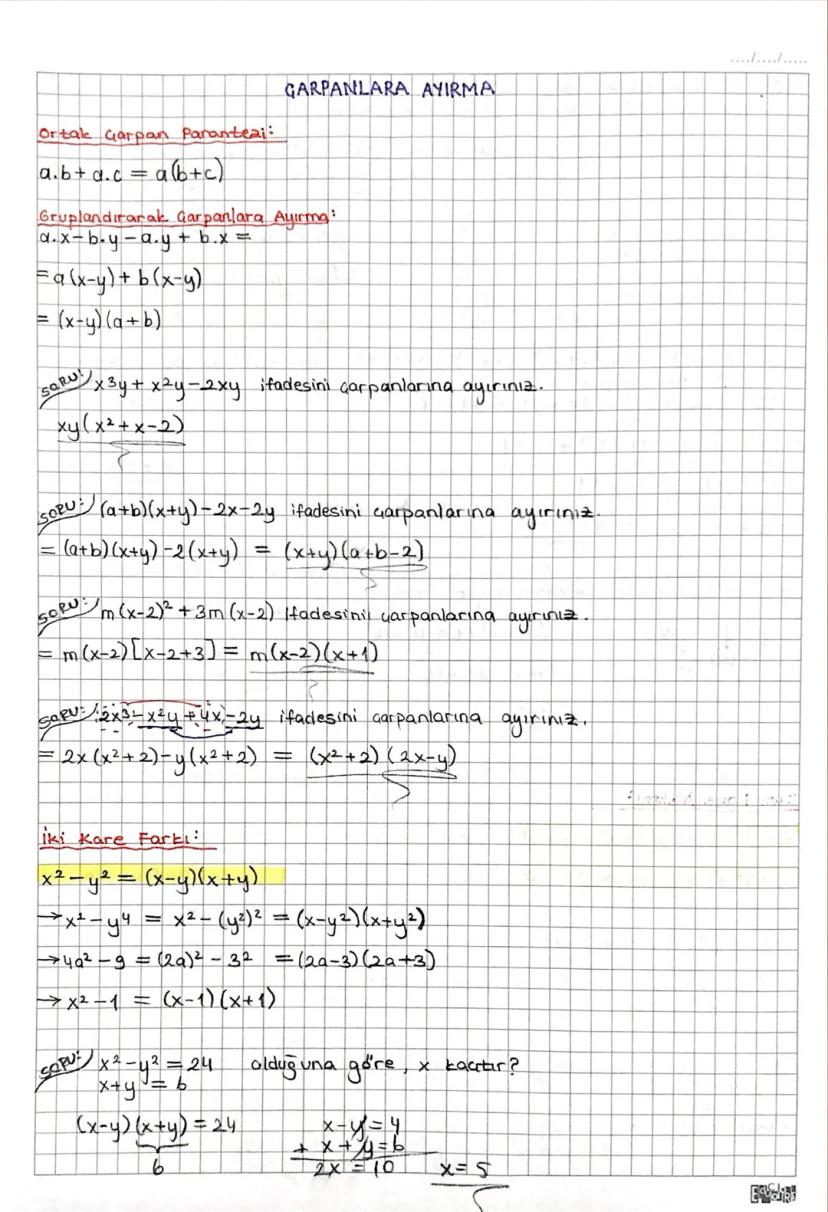 ..../..../......
ÇARPANLARA AYIRMA
Ortak Çarpan Parantezi:
a.b + a.c = a(b+c)
Gruplandırarak Çarpanlara Ayırma:
a.x - b.y - a.y + b.x =
= a(x-y) + b(x-y)
= (x-y)(a+b)
SORU: x3y + x2y - 2xy ifadesini çarpanlarına ayırınız.
xy(x²+x-2)
SORU: (a+b)(x+y) - 2x - 2y ifadesini çarpanlarına ayırınız.
= (a+b)(x+y) - 2(x+y) = (x+y)(a+b-2)
SORU: m(x-2)² + 3m(x-2) ifadesini çarpanlarına ayırınız.
= m(x-2)[x-2+3] = m(x-2)(x+1)
SORU: 2x3 - x²y + 4x - 2y ifadesini çarpanlarına ayırınız.
= 2x(x²+2) - y(x²+2) = (x²+2)(2x-y)
İki Kare Farkı:
x² - y² = (x-y)(x+y)
→ x² - y⁴ = x² - (y²)² = (x-y²)(x+y²)
→ 4a² - 9 = (2a)² - 3² = (2a-3)(2a+3)
→ x² - 1 = (x-1)(x+1)
SORU: x² - y² = 24 olduğuna göre, x kaçtır?
x+y = 6
(x-y)(x+y) = 24 x-y = 4
+ x+y = 6
6 2x = 10 x = 5